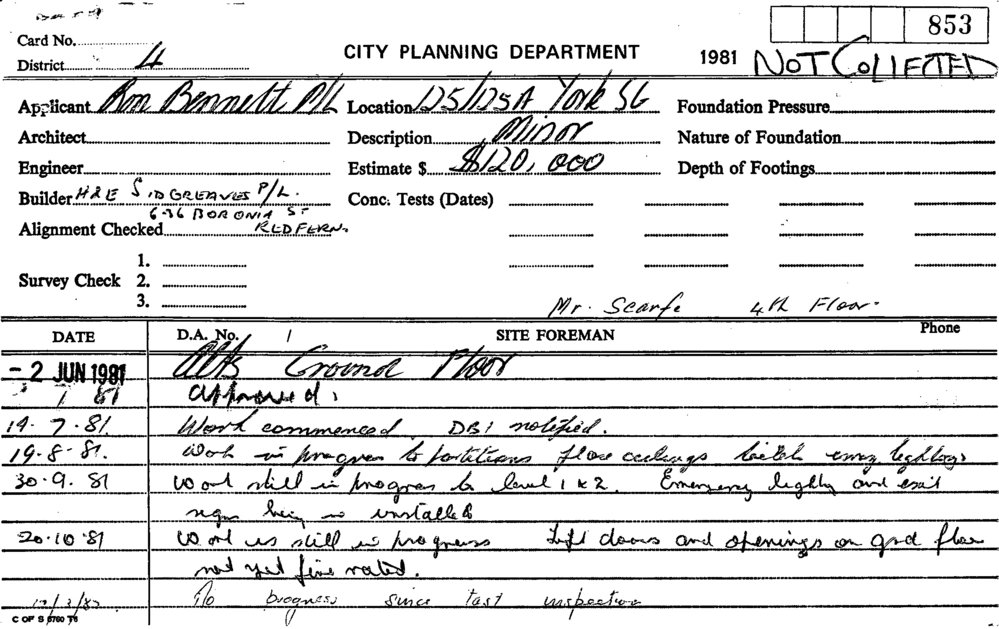 853
Card No.
CITY PLANNING DEPARTMENT 1981 NOT COLLECTED
District 4
Applicant Ron Bennett P/L Location 125/125A York St Foundation Pressure
Architect Description Minor Nature of Foundation
Engineer Estimate $ $120,000 Depth of Footings
Builder H&E SIDGREAVES P/L. Conc. Tests (Dates)
6-36 BORONIA ST
Alignment Checked REDFERN.
1.
Survey Check 2.
3.
Mr. Scarfe 4th Floor.
DATE D.A. No. SITE FOREMAN Phone
- 2 JUN 1981 Alts Ground Floor
81 approved.
14.7.81 Work commenced DBI notified.
19-8-81. Work in progress to partitions floor ceilings
30.9.81 Work still in progress to level 1 & 2. Emergency lighting and exit
signs being installed
20.10.81 Work is still in progress Lift doors and openings on grd floor
not yet fire rated.
No progress since last inspection
C OF S 6760 76